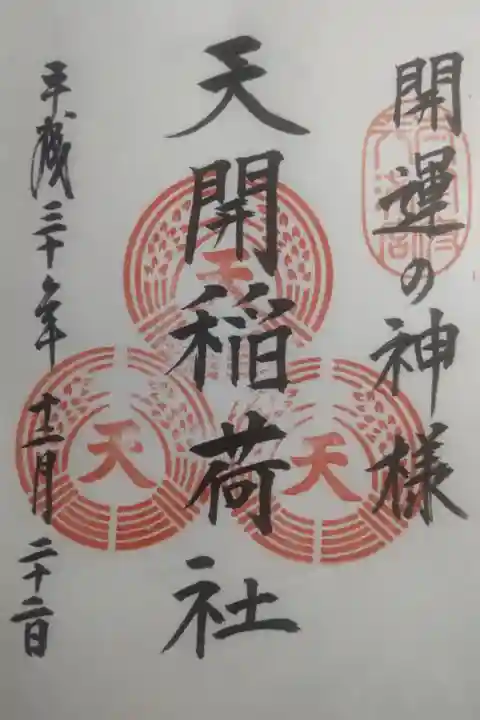 開運の神様
天開稲荷社
平成三十年 十二月 二十二日
天
天
天